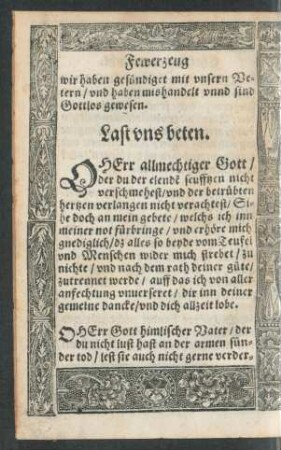 Fewerzeug
wir haben gesündiget mit vnsern Ve-
tern / vnd haben mishandelt vnnd sind
Gottlos gewesen.
Last vns beten.
OHErr allmechtiger Gott /
der du der elendē seufftzen nicht
verschmehest / vnd der betrübten
hertzen verlangen nicht verachtest / Si-
he doch an mein gebete / welchs ich inn
meiner not fürbringe / vnd erhöre mich
gnediglich / dz alles so beyde vom Teufel
vnd Menschen wider mich strebet / zu
nichte / vnd nach dem rath deiner güte /
zutrennet werde / auff das ich von aller
anfechtung vnuerseret / dir inn deiner
gemeine dancke / vnd dich allzeit lobe.
OHErr Gott himlischer Vater / der
du nicht lust hast an der armen sün-
der tod / lest sie auch nicht gerne verder-